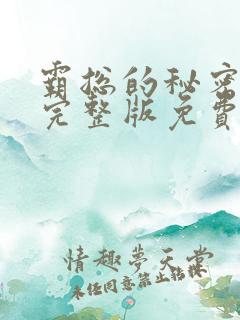 霸总的秘密
完整版免费
情趣夢天堂
未经同意禁止转载